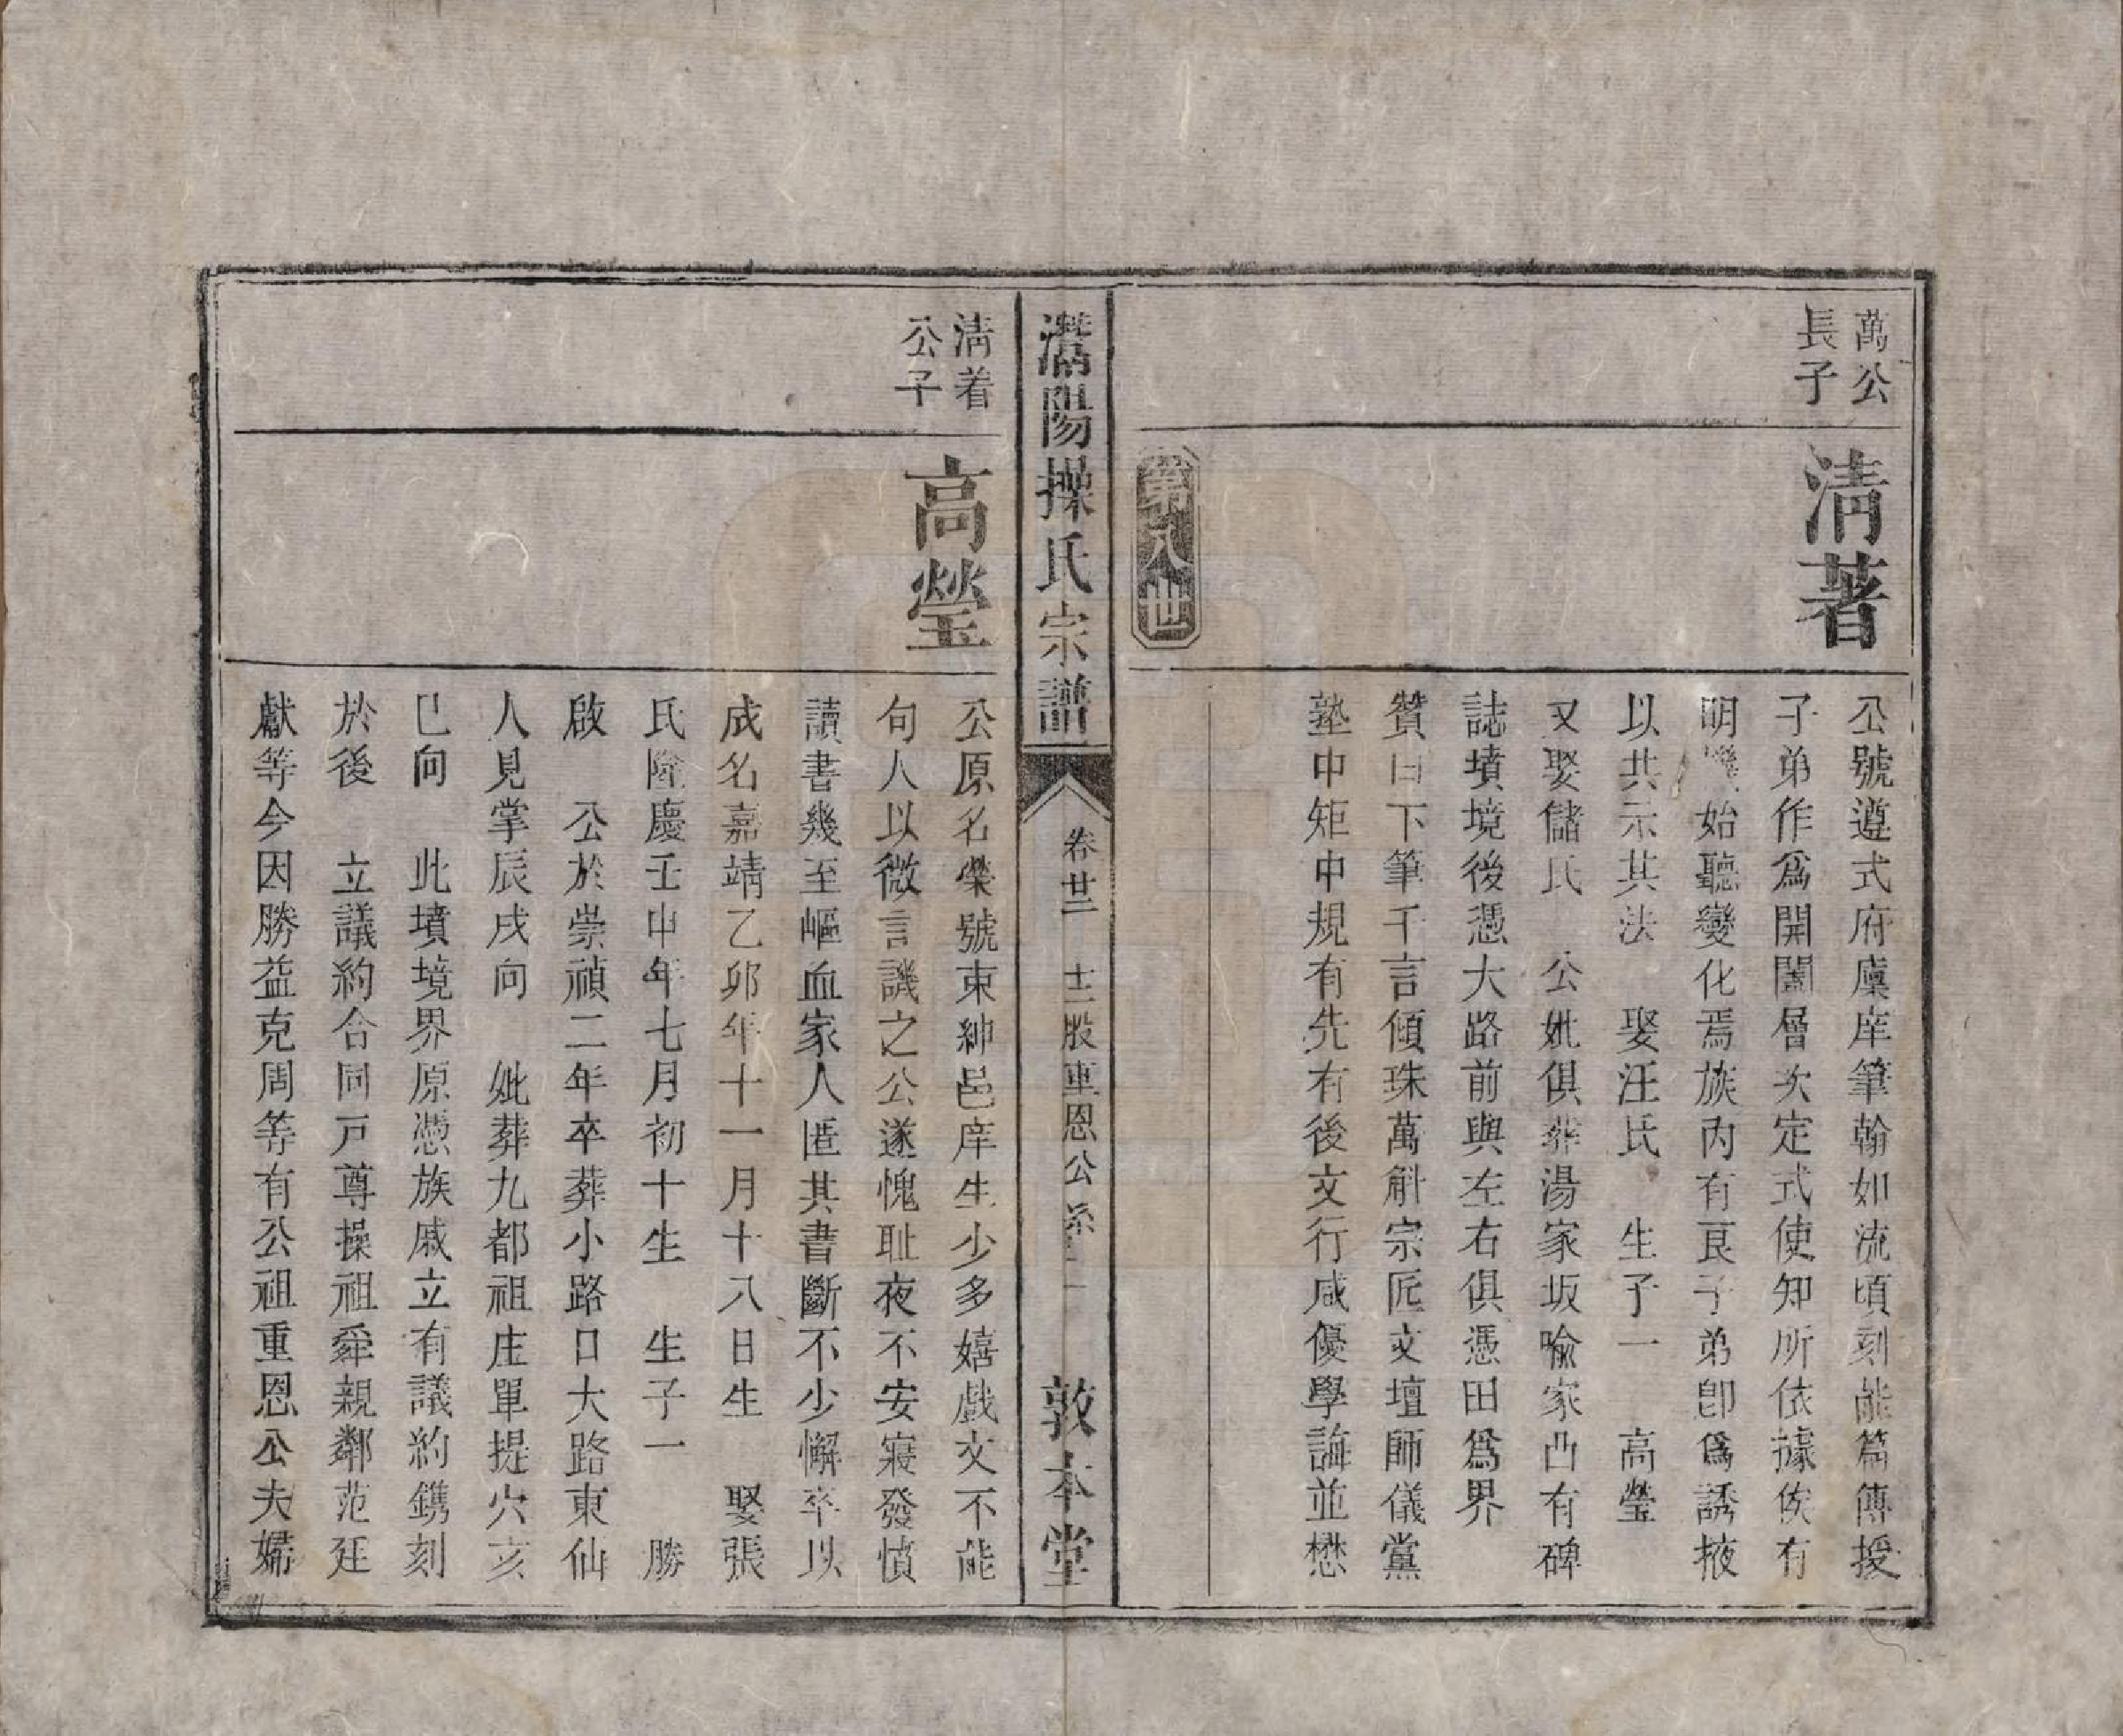 萬公
長子
清著
公號遵式府廩庠筆翰如流頃刻能篇傳授
子弟作爲開闔層次定式使知所依據俟有
明機始聽變化焉族内有良子弟卽爲誘掖
以共示其法　娶汪氏　生子一　高瑩
又娶儲氏　公妣俱葬湯家坂喩家凸有碑
誌墳境後憑大路前與左右俱憑田爲界
贊曰下筆千言傾珠萬斛宗匠文壇師儀黨
塾中矩中規有先有後文行咸優學誨並懋
第八世
灊陽操氏宗譜
卷廿二　十二股重恩公系　敦本堂
清着
公子
高瑩
公原名榮號東紳邑庠生少多嬉戲文不能
句人以微言譏之公遂愧耻夜不安寢發憤
讀書幾至嶇血家人匿其書斷不少懈卒以
成名嘉靖乙卯年十一月十八日生　娶張
氏隆慶壬申年七月初十生　生子一　勝
啟　公於崇禎二年卒葬小路口大路東仙
人見掌辰戌向　妣葬九都祖庄單提穴亥
巳向　此墳境界原憑族戚立有議約鐫刻
於後　立議約合同戸尊操祖舜親鄰范廷
獻等今因勝益克周等有公祖重恩公夫婦